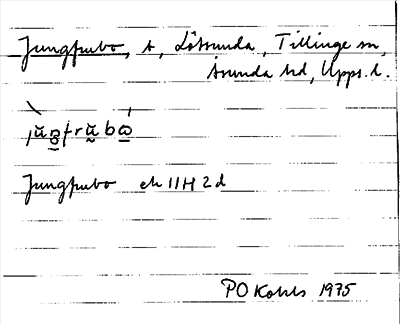 Jungfrubo, t, Lötsunda, Tillinge sn,
Åsunda hd, Upps. l.
Jungfrubo ek 11H 2d
PO Kohls 1975